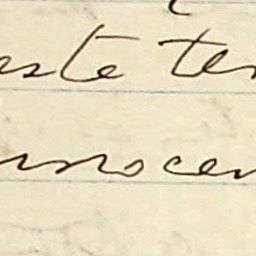 este ter
innocen